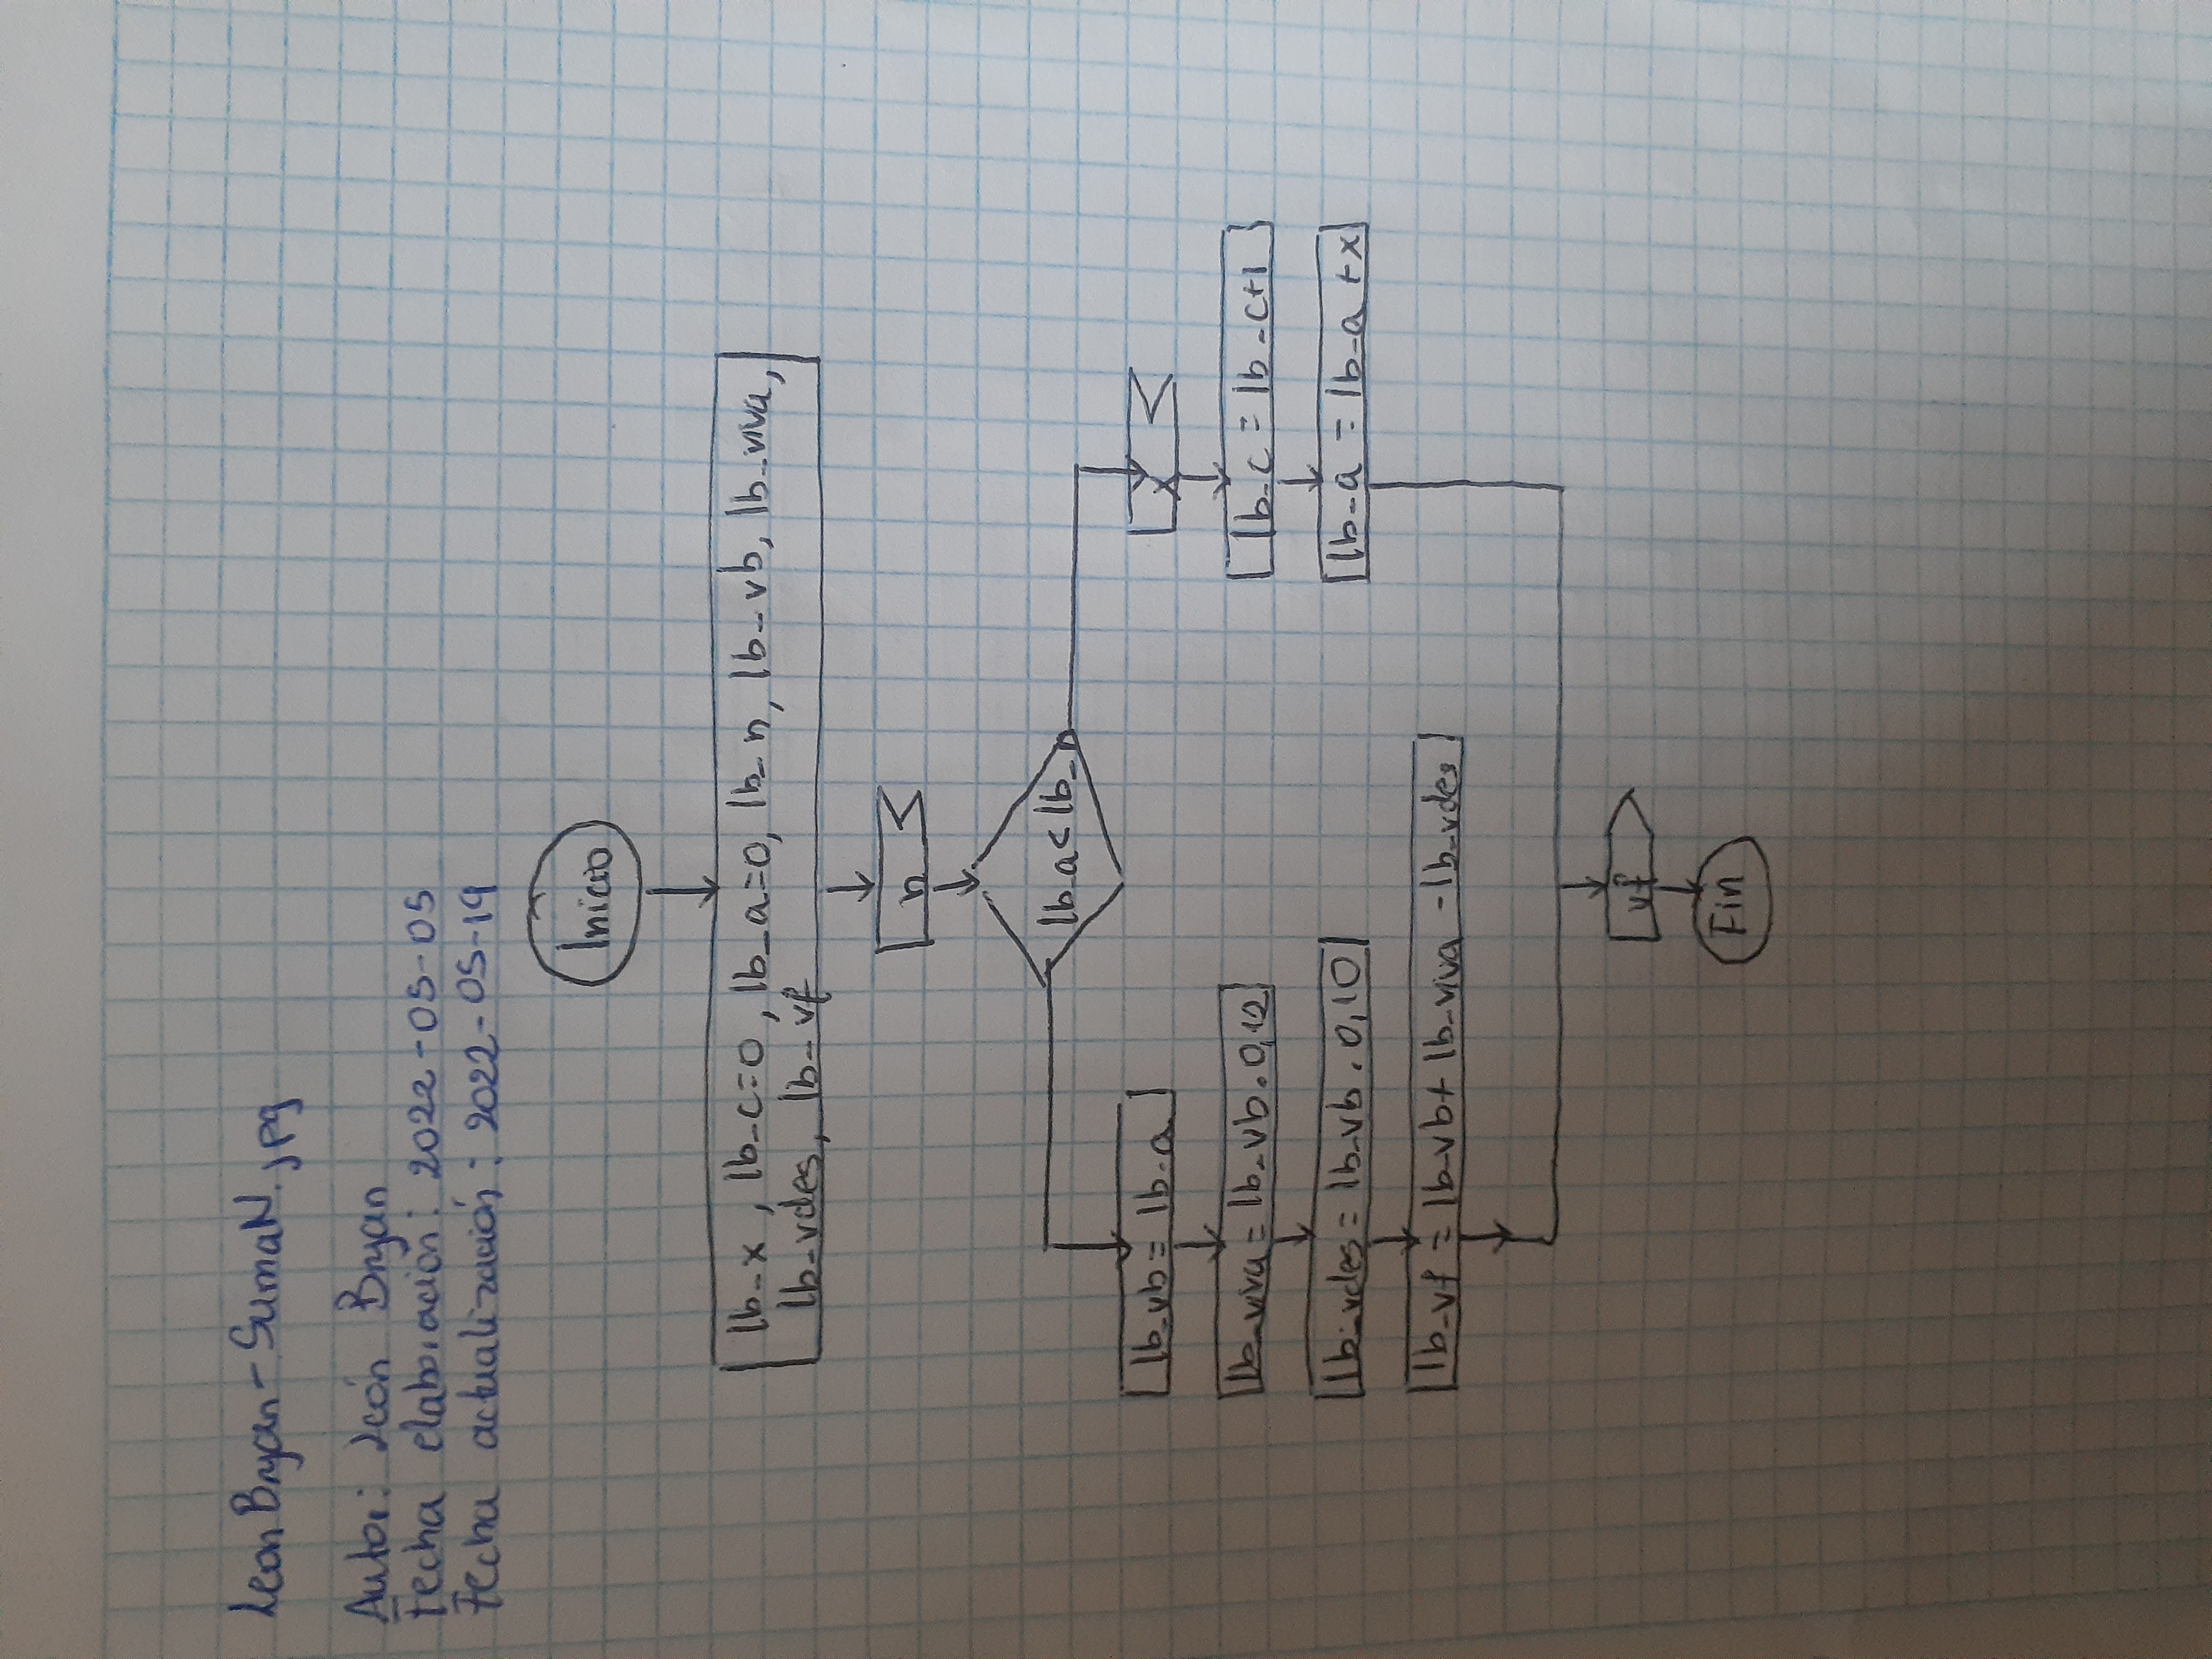 LeonBryan-SumaN.jpg
Autor: León Bryan
Fecha elaboración: 2022-05-05
Fecha actualización: 2022-05-19
Inicio
lb_x, lb_c=0, lb_a=0, lb_n, lb_vb, lb_viva,
lb_vdes, lb_vf
n
lb_a < lb_n
lb_vb = lb_a
lb_viva = lb_vb . 0,12
lb_vdes = lb_vb . 0,10
lb_vf = lb_vb + lb_viva - lb_vdes
x
lb_c = lb_c+1
lb_a = lb_a +x
vf
Fin